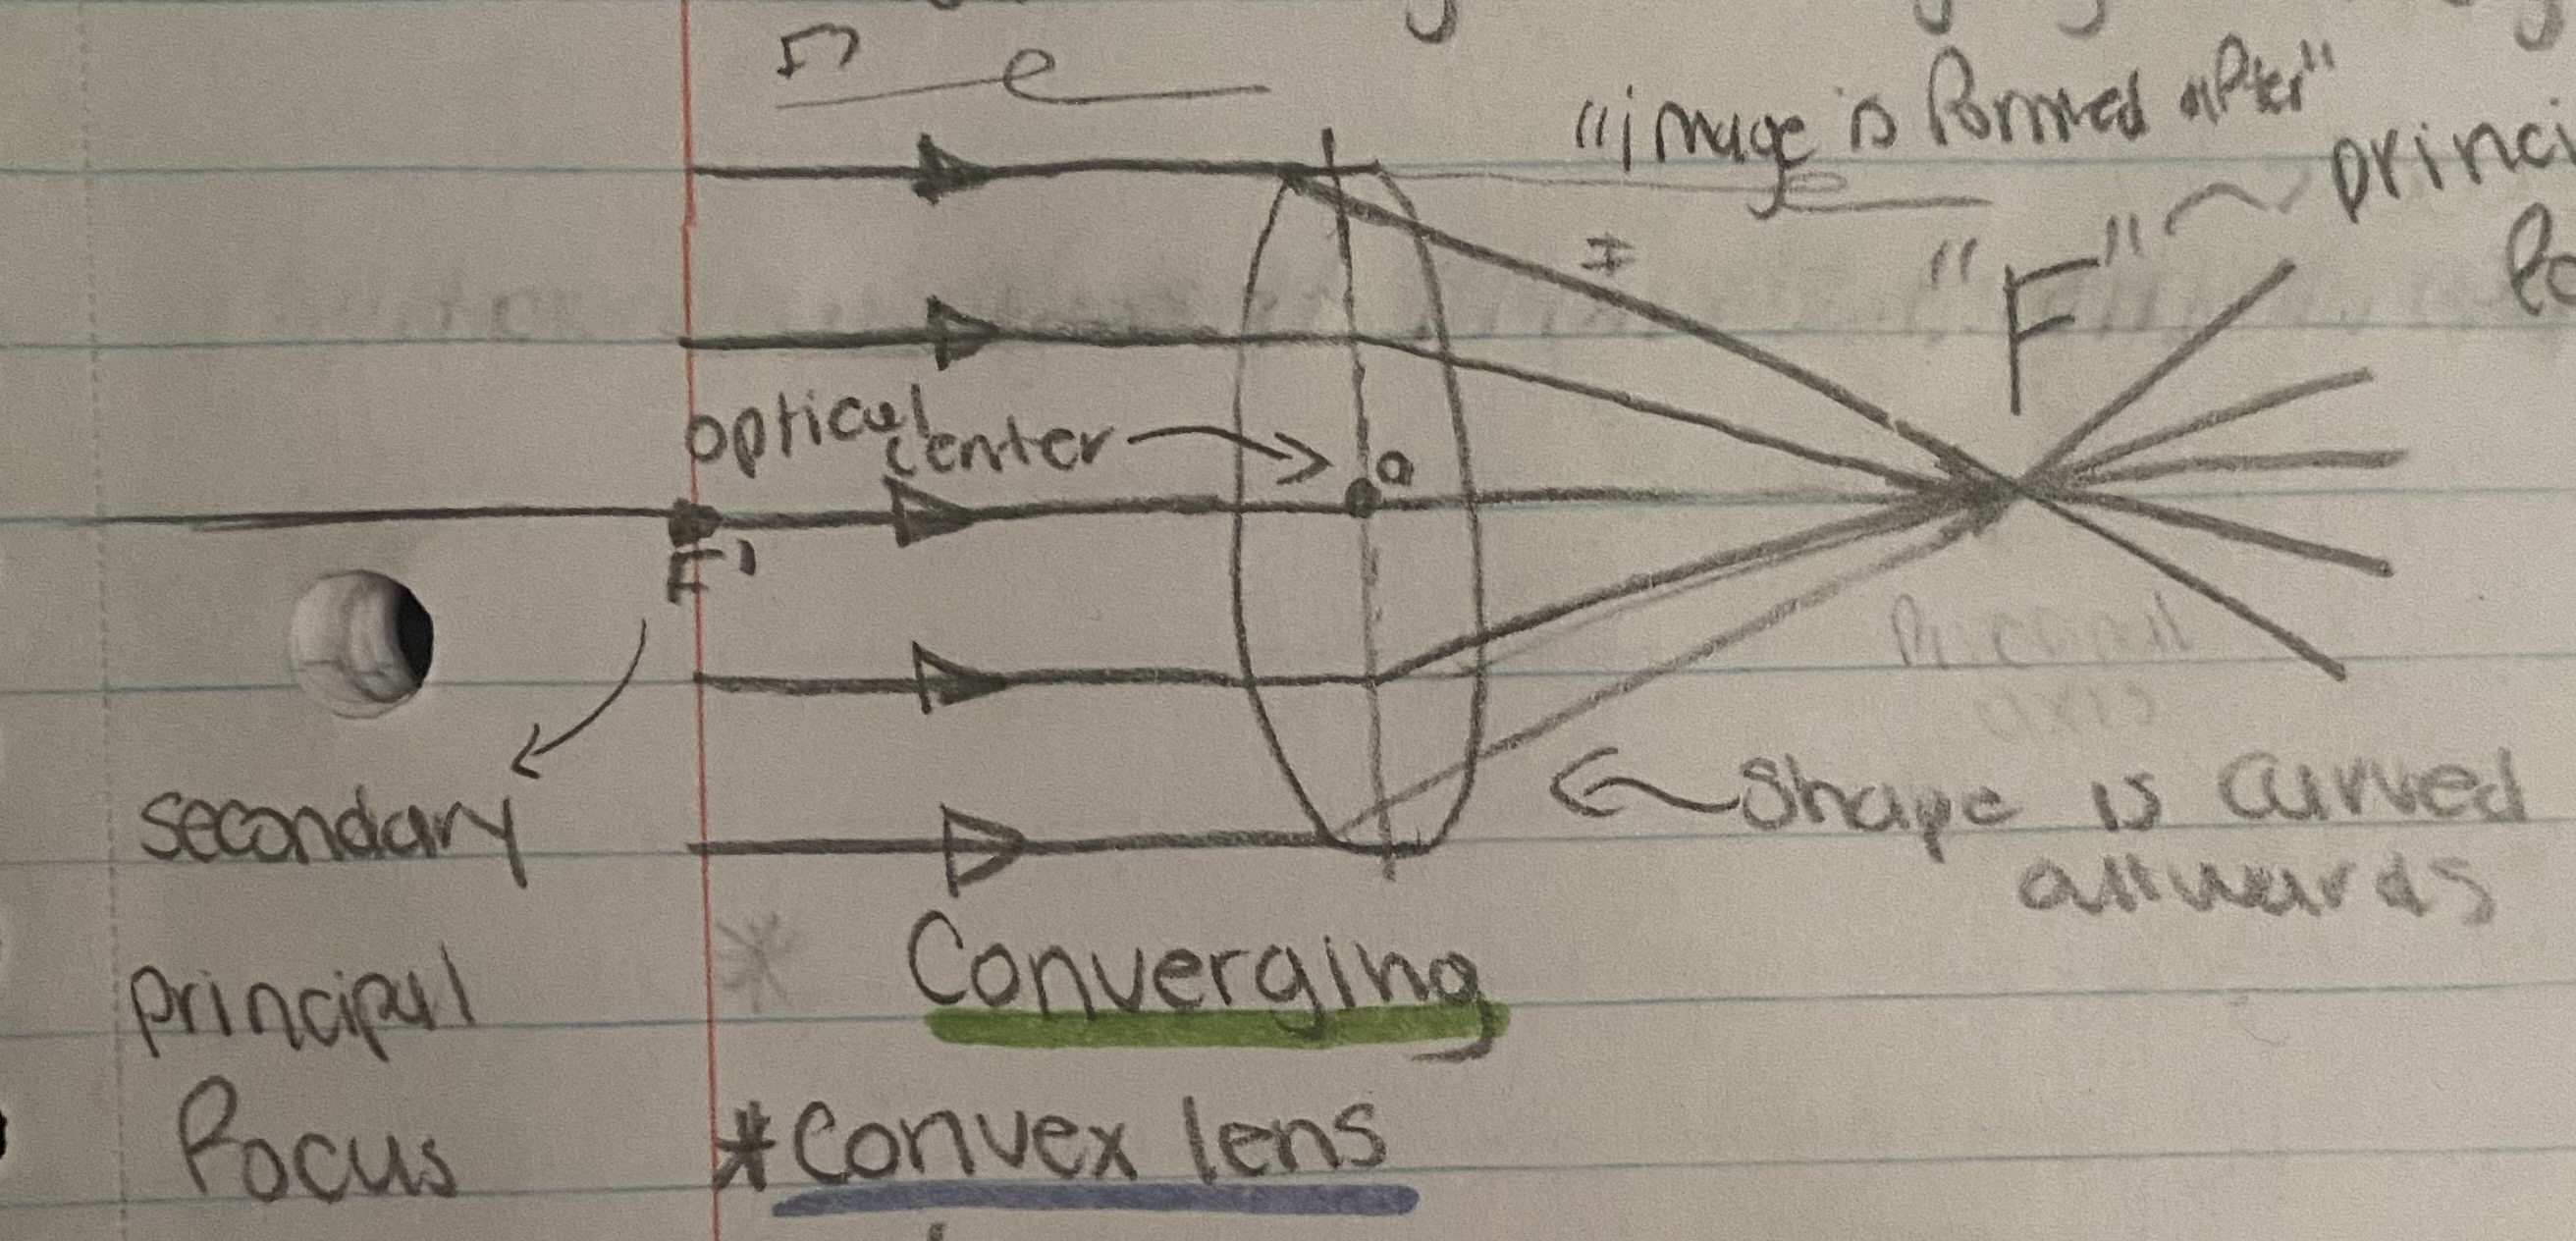 "image is formed after"
"F"
princi
Fo
optical
center
o
F'
secondary
principal
focus
Principal
axis
Shape is curved
outwards
* Converging
*Convex lens